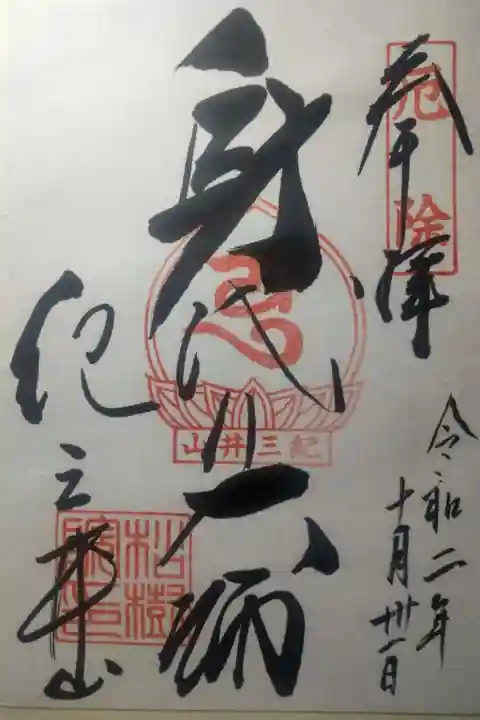 奉拝
厄除
令和二年
十月卅一日
身代大師
山井三紀
紀三井山
松樹
院印